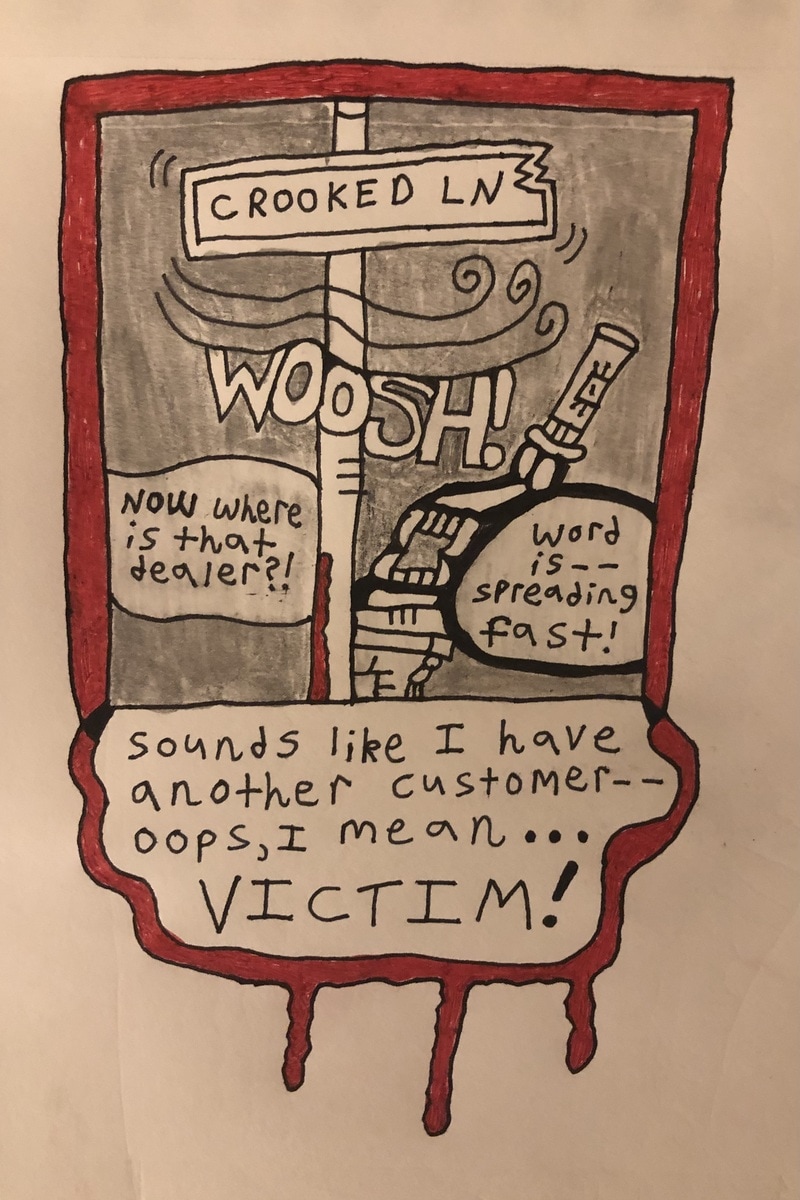 CROOKED LN
WOOSH!
NOW where
is that
dealer?!
word
is--
spreading
fast!
sounds like I have
another customer--
oops, I mean...
VICTIM!